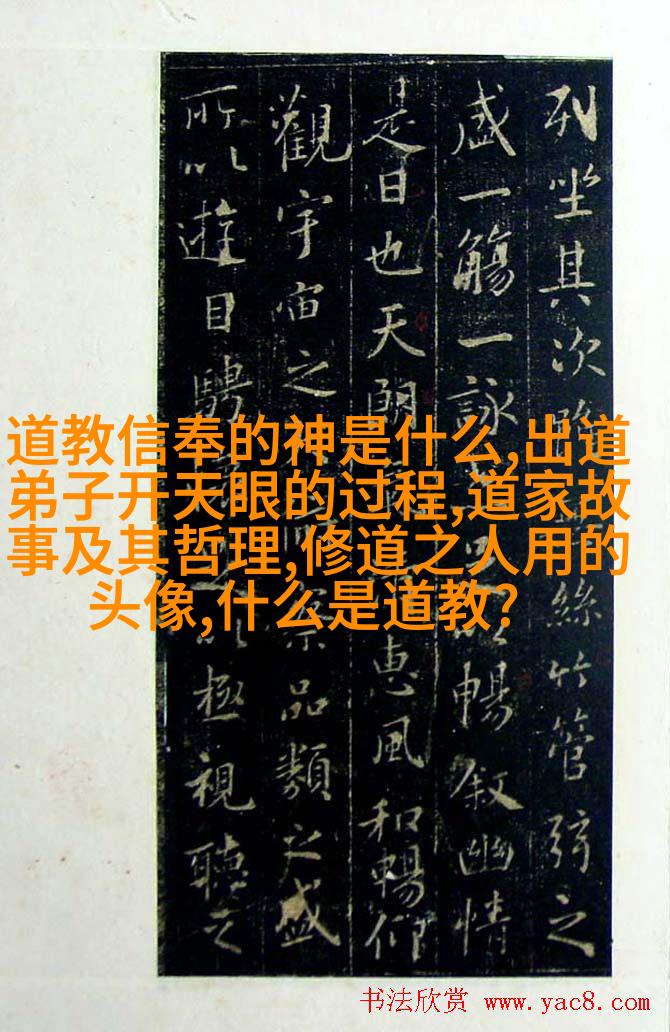 道教信奉的神是什么,出道
弟子开天眼的过程,道家故
事及其哲理,修道之人用的
头像,什么是道教?
列坐其次雖絲竹管弦之
盛一觴一詠足以暢叙幽情
是日也天朗惠風和暢仰
觀宇宙之察品類之盛
所以遊目騁以極視聽之
书法欣赏 www.yac8.com